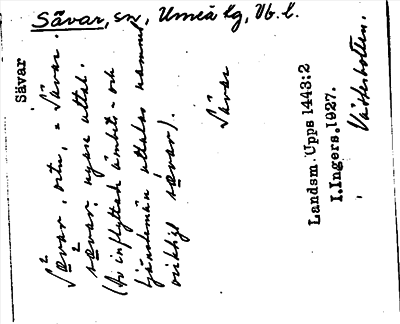 Sävar, sn, Umeå lg, Vb. l.
Sävar
Sævar, ortn, = Sävar.
sævar: nyare uttal.
(Av inflyttade ämbets- och
tjänstemän uttalas namnet
oriktigt sævar).
Sävar
Landsm. Upps 1443:2
I. Ingers. 1927.
Västerbotten.